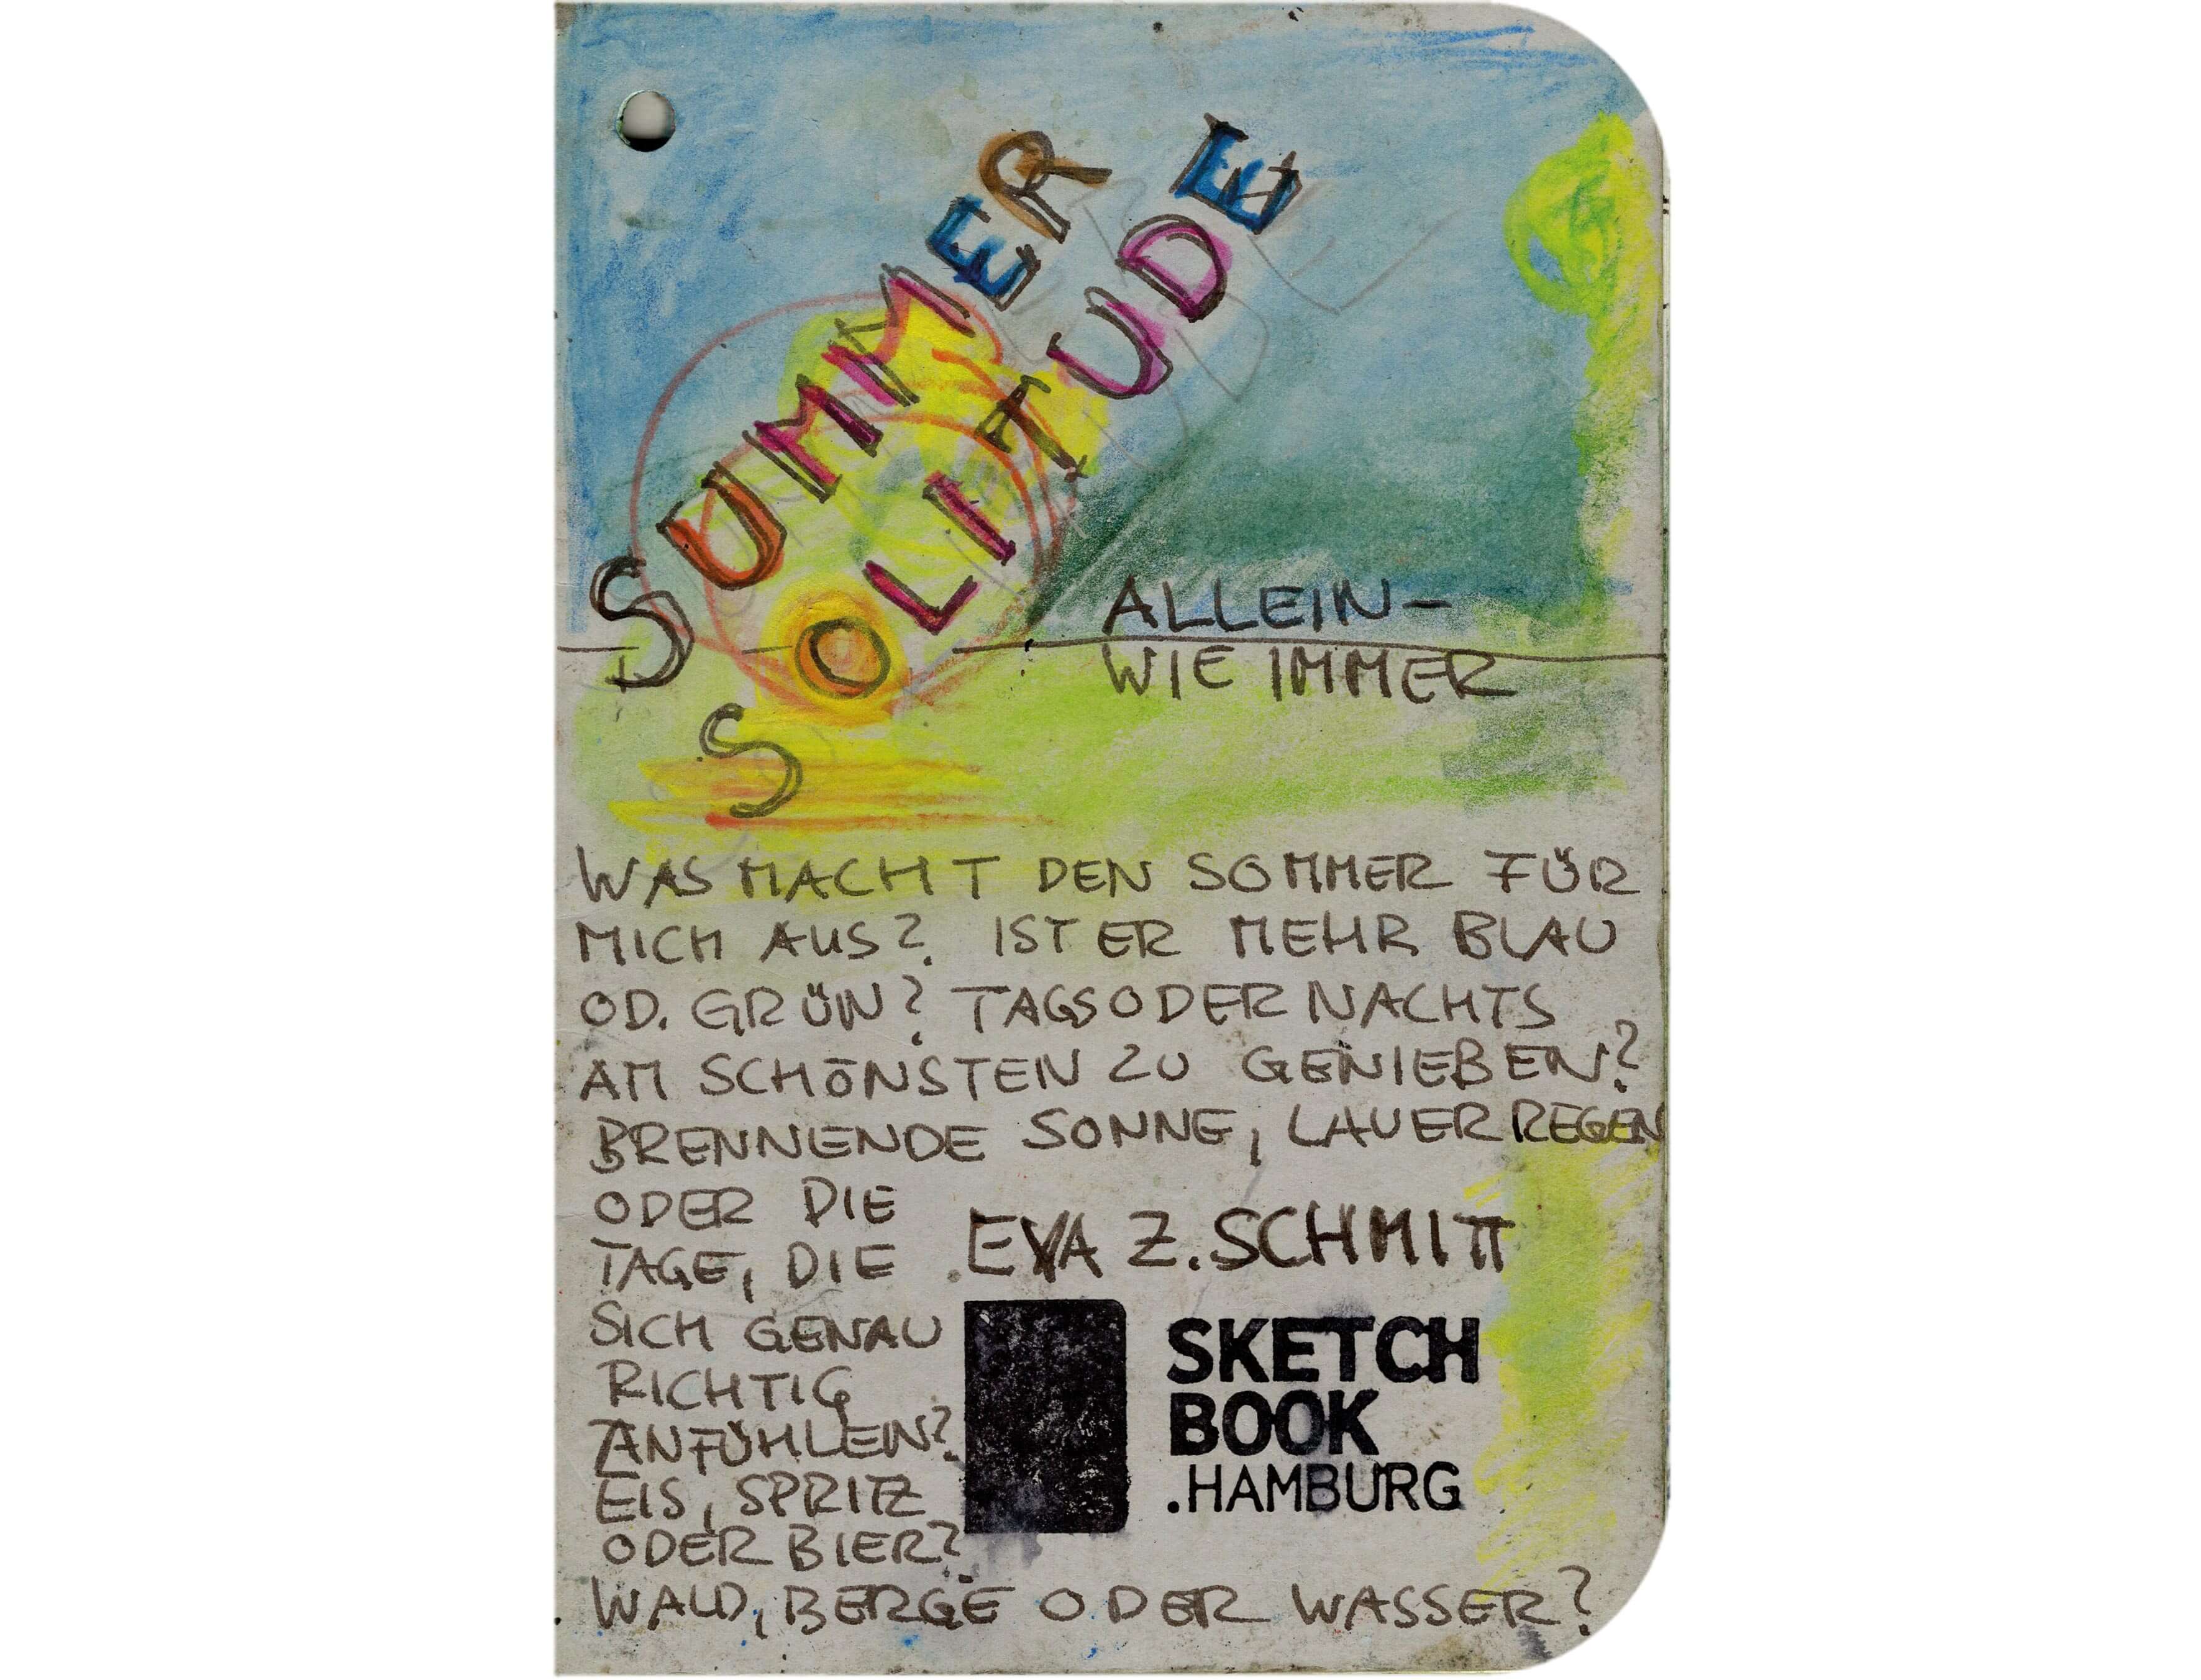 SUMMER
SOLITUDE
ALLEIN-
WIE IMMER
WAS MACHT DEN SOMMER FÜR
MICH AUS? IST ER MEHR BLAU
OD. GRÜN? TAGS ODER NACHTS
AM SCHÖNSTEN ZU GENIEßEN?
BRENNENDE SONNE, LAUER REGEN
ODER DIE
TAGE, DIE
SICH GENAU
RICHTIG
ANFÜHLEN?
EIS, SPRITZ
ODER BIER?
WALD, BERGE ODER WASSER?
EVA Z. SCHMITT
SKETCH
BOOK
.HAMBURG